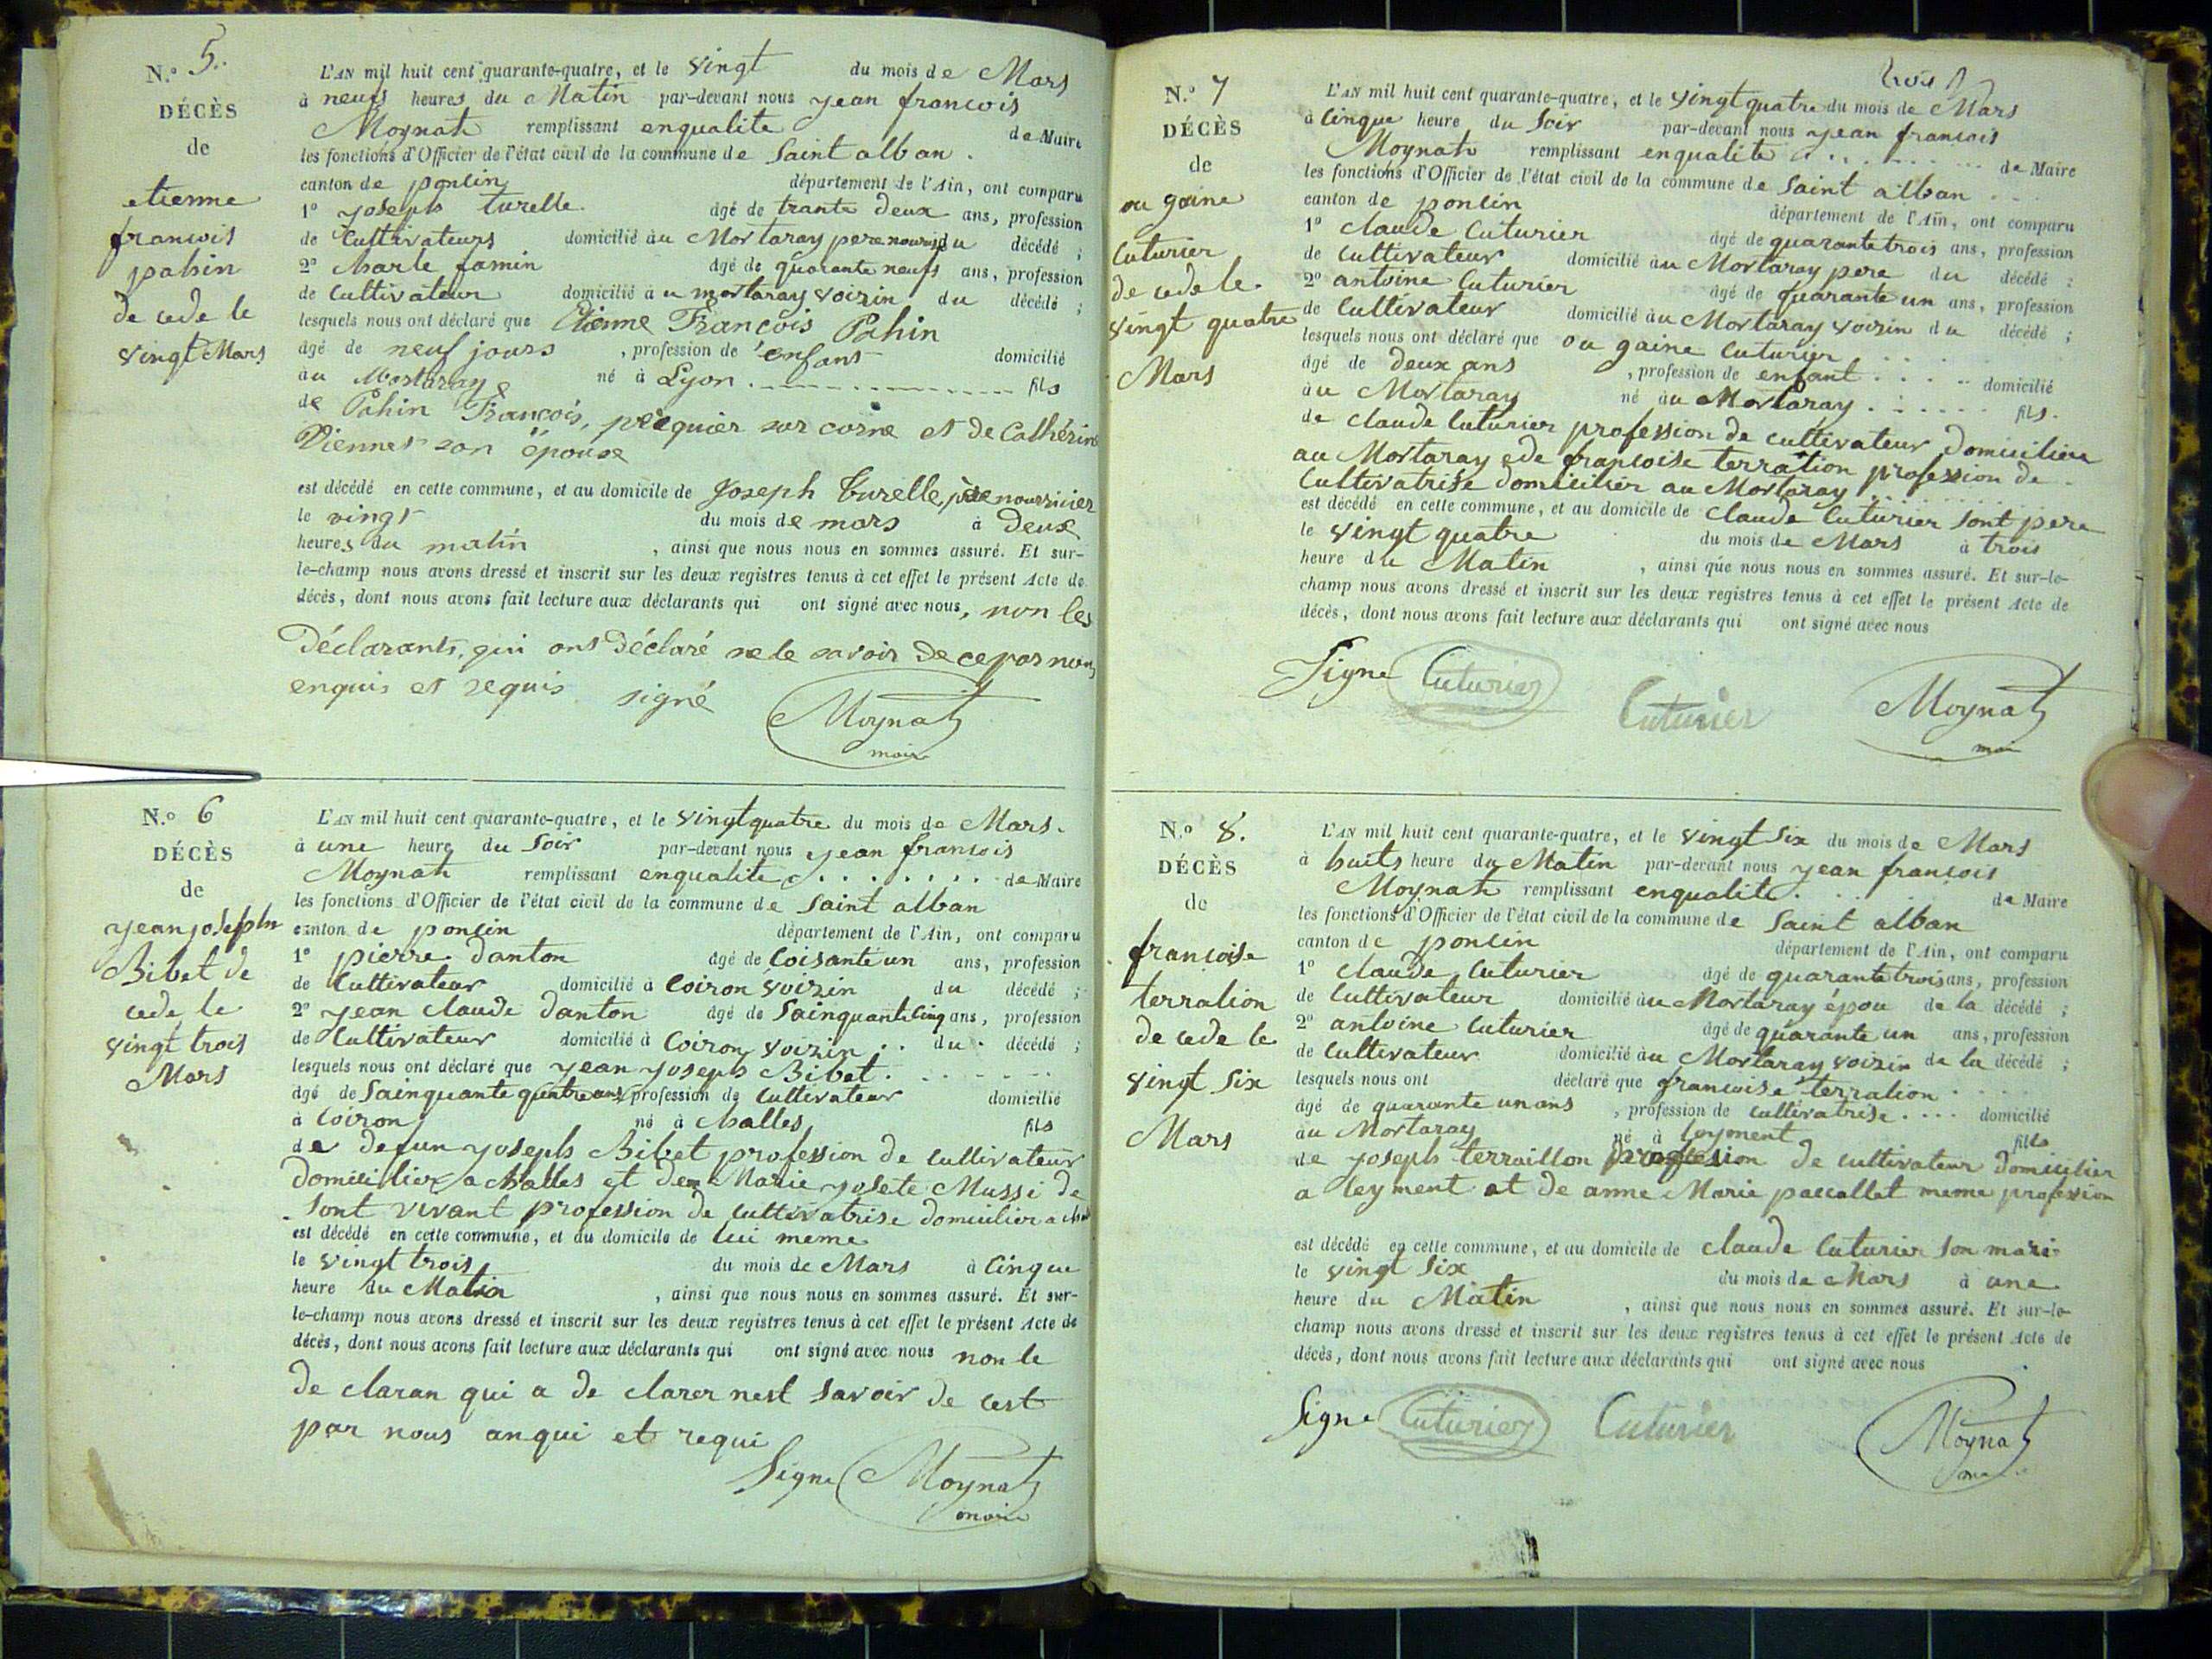 N.° 5.
DÉCÈS
de
etienne
francois
pahin
de cede le
vingt Mars
L'AN mil huit cent quarante-quatre, et le vingt du mois de Mars
à neufs heures du Matin par-devant nous jean francois
Moynat remplissant enqualite de Maire
les fonctions d'Officier de l'état civil de la commune de Saint alban .
canton de poncin département de l'Ain, ont comparu
1° joseph turelle âgé de trante deux ans, profession
de Cultivateurs domicilié au Mortaray pere nouricié du décédé ;
2° Charle famin âgé de quarante neufs ans, profession
de Cultivateur domicilié au mortaray voizin du décédé ;
lesquels nous ont déclaré que Etienne François Pahin
âgé de neuf jours , profession de enfant domicilié
au Mortaray né à Lyon fils
de Pahin François, perquier sur corne et de Cathérine
Viennet son épouse
est décédé en cette commune, et au domicile de Joseph Turelle, père nourricier
le vingt du mois de mars à Deux
heures du matin , ainsi que nous nous en sommes assuré. Et sur-
le-champ nous avons dressé et inscrit sur les deux registres tenus à cet effet le présent Acte de
décès, dont nous avons fait lecture aux déclarants qui ont signé avec nous, non les
Déclarants, qui ont Déclaré ne le savoir De ce par nous
enquis et requis signé Moynat
maire
N.° 6
DÉCÈS
de
jean joseph
Bibet de
cede le
vingt trois
Mars
L'AN mil huit cent quarante-quatre, et le vingt quatre du mois de Mars .
à une heure du Soir par-devant nous jean francois
Moynat remplissant enqualite . . . . . . . de Maire
les fonctions d'Officier de l'état civil de la commune de Saint alban
canton de poncin département de l'Ain, ont comparu
1° pierre danton âgé de Coisante un ans, profession
de Cultivateur domicilié à Coiron voizin du décédé ;
2° jean claude danton âgé de Sainquante Cinq ans, profession
de Cultivateur domicilié à Coiron voizin . . du . décédé ;
lesquels nous ont déclaré que jean joseph Bibet .
âgé de Sainquante quatre ans, profession de Cultivateur domicilié
à Coiron né à Challes fils
de defun joseph Bibet profession de cultivateur
domicilier a challes et de Marie josete Mussi de
Sont vivant profession de Cultivatrise domicilier a
est décédé en cette commune, et au domicile de lui meme
le vingt trois du mois de Mars à Cinque
heure du Matin , ainsi que nous nous en sommes assuré. Et sur-
le-champ nous avons dressé et inscrit sur les deux registres tenus à cet effet le présent Acte de
décès, dont nous avons fait lecture aux déclarants qui ont signé avec nous non le
de claran qui a de clarer nest savoir de cest
par nous anqui et requi
Signe Moynat
maire
trois
N.° 7
DÉCÈS
de
ou gaine
Cuturier
de cede le
vingt quatre
Mars
L'AN mil huit cent quarante-quatre, et le vingt quatre du mois de Mars
à Cinque heure du Soir par-devant nous jean francois
Moynat remplissant enqualite de Maire
les fonctions d'Officier de l'état civil de la commune de Saint alban
canton de poncin département de l'Ain, ont comparu
1° claude Cuturier âgé de quarante trois ans, profession
de Cultivateur domicilié au Mortaray pere du décédé ;
2° antoine Cuturier âgé de quarante un ans, profession
de Cultivateur domicilié au Mortaray voizin du décédé ;
lesquels nous ont déclaré que ou gaine Cuturier
âgé de deux ans , profession de enfant . . . . domicilié
au Mortaray né au Mortaray fils .
de claude Cuturier profession de cultivateur domicilier
au Mortaray ede françoise terration profession de
Cultivatrise domicilier au Mortaray
est décédé en cette commune, et au domicile de claude Cuturier Sont pere
le vingt quatre du mois de Mars à trois
heure du Matin , ainsi que nous nous en sommes assuré. Et sur-le-
champ nous avons dressé et inscrit sur les deux registres tenus à cet effet le présent Acte de
décès, dont nous avons fait lecture aux déclarants qui ont signé avec nous
Signe Cuturier Cuturier Moynat
N.° 8.
DÉCÈS
de
francoise
terration
de cede le
vingt Six
Mars
L'AN mil huit cent quarante-quatre, et le vingt Six du mois de Mars
à huits heure du Matin par-devant nous jean françois
Moynat remplissant enqualite de Maire
les fonctions d'Officier de l'état civil de la commune de Saint alban
canton de poncin département de l'Ain, ont comparu
1° claude Cuturier âgé de quarante trois ans, profession
de Cultivateur domicilié au Mortaray épou de la décédé ;
2° antoine Cuturier âgé de quarante un ans, profession
de Cultivateur domicilié au Mortaray voizin de la décédé ;
lesquels nous ont déclaré que francoise terration
âgé de quarante un ans , profession de cultivatrise . . . . domicilié
au Mortaray né à leyment fille
de joseph terraillon profession de cultivateur domicilier
a leyment et de anne Marie paccallet meme profession
est décédé en cette commune, et au domicile de claude Cuturier Son mari
le vingt Six du mois de Mars à une
heure du Matin , ainsi que nous nous en sommes assuré. Et sur-le-
champ nous avons dressé et inscrit sur les deux registres tenus à cet effet le présent Acte de
décès, dont nous avons fait lecture aux déclarants qui ont signé avec nous
Signe Cuturier Cuturier Moynat